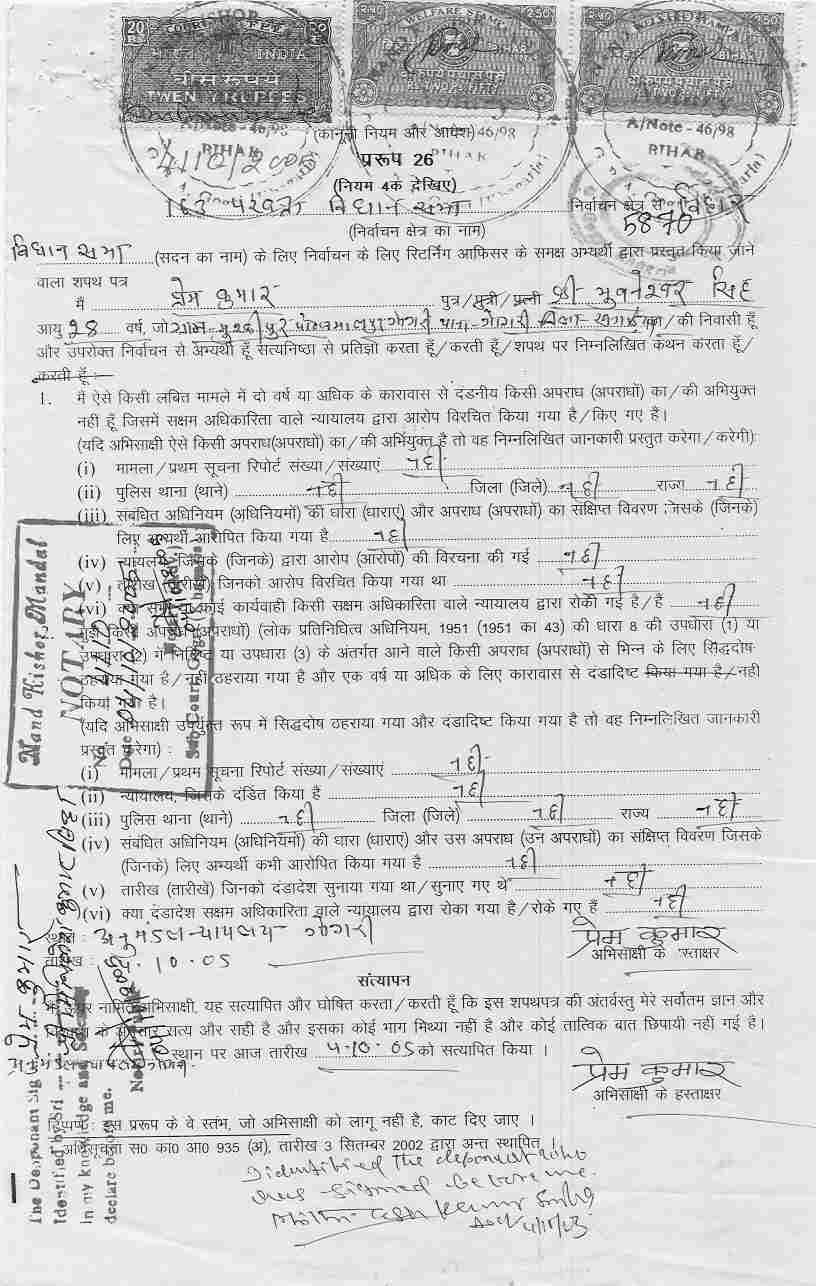 20 COURT FEE 20
भारत INDIA
बीस रुपये
TWENTY RUPEES
WELFARE STAMP
250
BIHAR
250 WELFARE STAMP 250
BIHAR
A/Note - 46/98
BIHAR
A/Note - 46/98
BIHAR
4/10/2005
(कानूनी नियम और आदेश) 46/98
प्ररूप 26
(नियम 4क देखिए)
163 परबत्ता विधान सभा निर्वाचन क्षेत्र से बिहार
5870
(निर्वाचन क्षेत्र का नाम)
विधान सभा (सदन का नाम) के लिए निर्वाचन के लिए रिटर्निग आफिसर के समक्ष अभ्यर्थी द्वारा प्रस्तुत किया जाने
वाला शपथ पत्र
मैं प्रेम कुमार पुत्र/पुत्री/पत्नी श्री भुवनेश्वर सिंह
आयु 28 वर्ष, जो ग्राम- मुश्कीपुर गोगरी थाना-गोगरी जिला- / की निवासी हूँ
और उपरोक्त निर्वाचन से अभ्यर्थी हूँ सत्यनिष्ठा से प्रतिज्ञा करता हूँ/करती हूँ/शपथ पर निम्नलिखित कथन करता हूँ/
करती हूँ :-
1. मैं ऐसे किसी लंबित मामले में दो वर्ष या अधिक के कारावास से दंडनीय किसी अपराध (अपराधों) का/की अभियुक्त
नहीं हूँ जिसमें सक्षम अधिकारिता वाले न्यायालय द्वारा आरोप विरचित किया गया है/किए गए हैं।
(यदि अभिसाक्षी ऐसे किसी अपराध(अपराधों) का/की अभियुक्त है तो वह निम्नलिखित जानकारी प्रस्तुत करेगा/करेगी):
(i) मामला/प्रथम सूचना रिपोर्ट संख्या/संख्याएं नहीं
(ii) पुलिस थाना (थाने) नहीं जिला (जिले) नहीं राज्य नहीं
(iii) संबंधित अधिनियम (अधिनियमों) की धारा (धाराएं) और अपराध (अपराधों) का संक्षिप्त विवरण जिसके (जिनके)
लिए अभ्यर्थी आरोपित किया गया है नहीं
(iv) न्यायलय, जिसके (जिनके) द्वारा आरोप (आरोपों) की विरचना की गई नहीं
(v) तारीख (तारीखें) जिनको आरोप विरचित किया गया था नहीं
(vi) क्या कोई कार्यवाही किसी सक्षम अधिकारिता वाले न्यायालय द्वारा रोकी गई है/हैं नहीं
2. मुझे किसी अपराध (अपराधों) (लोक प्रतिनिधित्व अधिनियम, 1951 (1951 का 43) की धारा 8 की उपधारा (1) या
उपधारा (2) में निर्दिष्ट या उपधारा (3) के अंतर्गत आने वाले किसी अपराध (अपराधों) से भिन्न के लिए सिद्धदोष
ठहराया गया है/नहीं ठहराया गया है और एक वर्ष या अधिक के लिए कारावास से दंडादिष्ट किया गया है/नहीं
किया गया है।
(यदि अभिसाक्षी उपर्युक्त रूप में सिद्धदोष ठहराया गया और दंडादिष्ट किया गया है तो वह निम्नलिखित जानकारी
प्रस्तुत करेगा) :
(i) मामला/प्रथम सूचना रिपोर्ट संख्या/संख्याएं नहीं
(ii) न्यायालय, जिसके दंडित किया है नहीं
(iii) पुलिस थाना (थाने) नहीं जिला (जिले) नहीं राज्य नहीं
(iv) संबंधित अधिनियम (अधिनियमों) की धारा (धाराएं) और उस अपराध (उन अपराधों) का संक्षिप्त विवरण जिसके
(जिनके) लिए अभ्यर्थी कभी आरोपित किया गया है नहीं
(v) तारीख (तारीखें) जिनको दंडादेश सुनाया गया था/सुनाए गए थे नहीं
(vi) क्या दंडादेश सक्षम अधिकारिता वाले न्यायालय द्वारा रोका गया है/रोके गए हैं नहीं
स्थान : अनुमंडल न्यायलय गोगरी
तारीख : 4.10.05
प्रेम कुमार
अभिसाक्षी के हस्ताक्षर
सत्यापन
अभिसाक्षी, यह सत्यापित और घोषित करता/करती हूँ कि इस शपथपत्र की अंतर्वस्तु मेरे सर्वोतम ज्ञान और
सत्य और सही है और इसका कोई भाग मिथ्या नहीं है और कोई तात्विक बात छिपायी नहीं गई है।
स्थान पर आज तारीख 4.10.05 को सत्यापित किया ।
प्रेम कुमार
अभिसाक्षी के हस्ताक्षर
टिप्पण : इस प्ररूप के वे स्तंभ, जो अभिसाक्षी को लागू नहीं है, काट दिए जाए ।
अधिसूचना स0 का0 आ0 935 (अ), तारीख 3 सितम्बर 2002 द्वारा अन्त स्थापित ।
Identified the deponent who
has signed before me.
Nand Kishor Mandal
NOTARY
No
Date 04/10/2005
Sub Court, Gogri
The Deponant Sig प्रेम कुमार
Identified by Sri
In my knowledge and
declare before me.